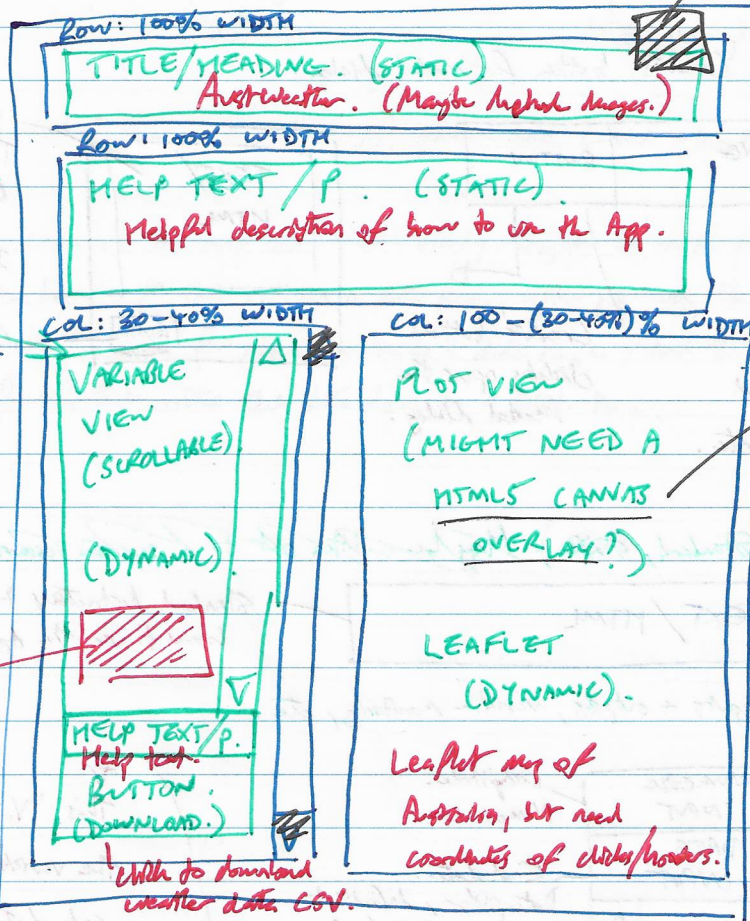 ROW: 100% WIDTH
TITLE/HEADING. (STATIC)
AustWeather. (Maybe images.)
ROW: 100% WIDTH
HELP TEXT / P. (STATIC).
Helpful description of how to use the App.
COL: 30-40% WIDTH
VARIABLE
VIEW
(SCROLLABLE)
(DYNAMIC).
HELP TEXT/P.
Help text.
BUTTON.
(DOWNLOAD.)
Click to download
weather data CSV.
COL: 100-(30-40%)% WIDTH
PLOT VIEW
(MIGHT NEED A
HTML5 CANVAS
OVERLAY?)
LEAFLET
(DYNAMIC).
Leaflet map of
Australia, but need
coordinates of clicks/hovers.